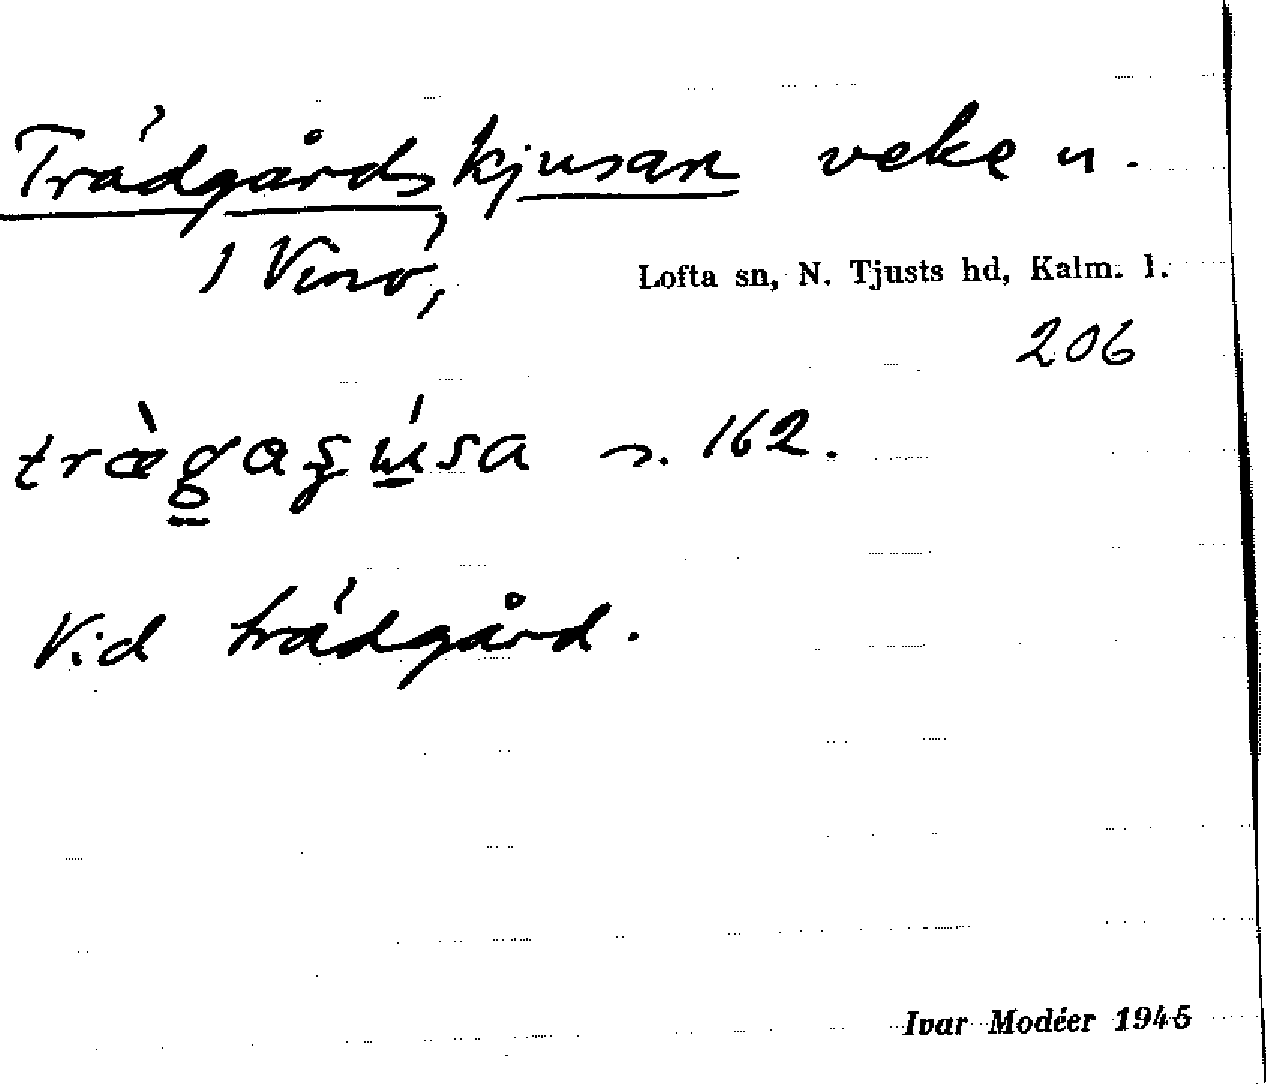 Trädgårdskjusan veke n.
1 Vinö,
Lofta sn, N. Tjusts hd, Kalm. l.
206
s. 162.
Vid trädgård.
Ivar Modéer 1945